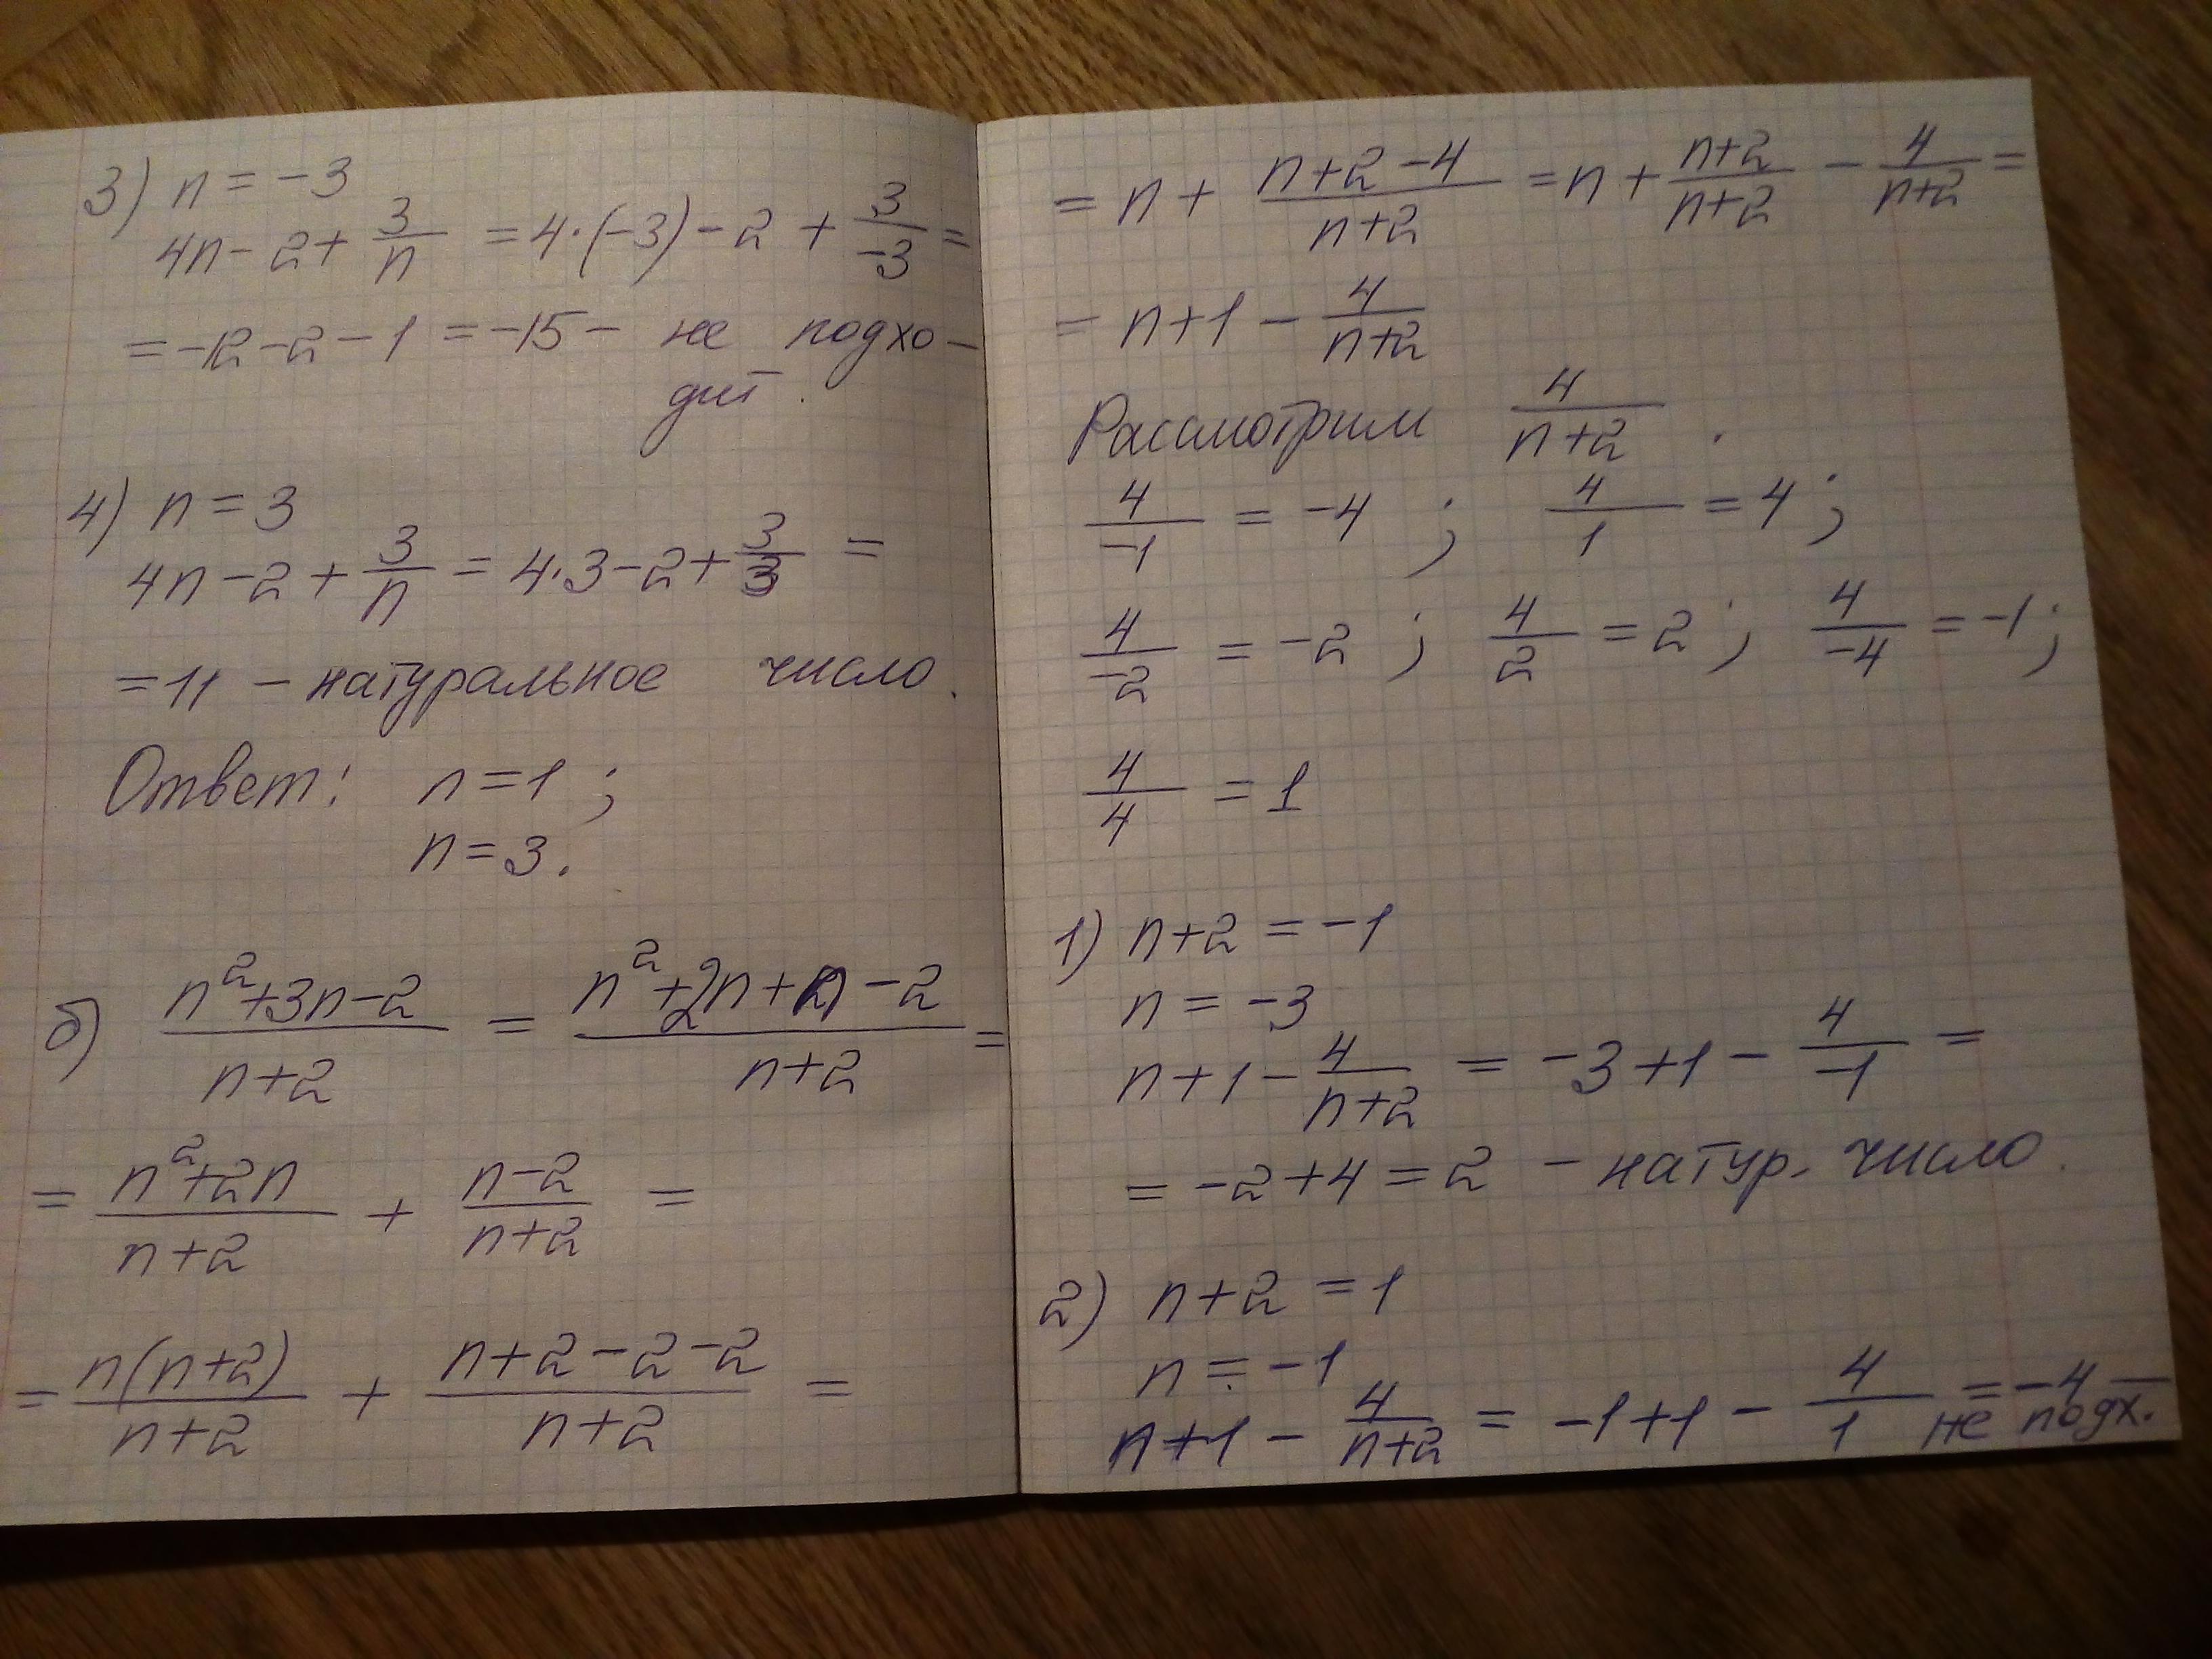 3) n = -3
4n - 2 + 3/n = 4·(-3) - 2 + 3/-3 =
= -12 - 2 - 1 = -15 - не подхо-
дит.
4) n = 3
4n - 2 + 3/n = 4·3 - 2 + 3/3 =
= 11 - натуральное число.
Ответ: n = 1;
n = 3.
б) (n² + 3n - 2)/(n + 2) = (n² + 2n + n - 2)/(n + 2) =
= (n² + 2n)/(n + 2) + (n - 2)/(n + 2) =
= n(n + 2)/(n + 2) + (n + 2 - 2 - 2)/(n + 2) =
= n + (n + 2 - 4)/(n + 2) = n + (n + 2)/(n + 2) - 4/(n + 2) =
= n + 1 - 4/(n + 2)
Рассмотрим 4/(n + 2).
4/-1 = -4; 4/1 = 4;
4/-2 = -2; 4/2 = 2; 4/-4 = -1;
4/4 = 1
1) n + 2 = -1
n = -3
n + 1 - 4/(n + 2) = -3 + 1 - 4/-1 =
= -2 + 4 = 2 - натур. число.
2) n + 2 = 1
n = -1
n + 1 - 4/(n + 2) = -1 + 1 - 4/1 = -4 -
не подх.